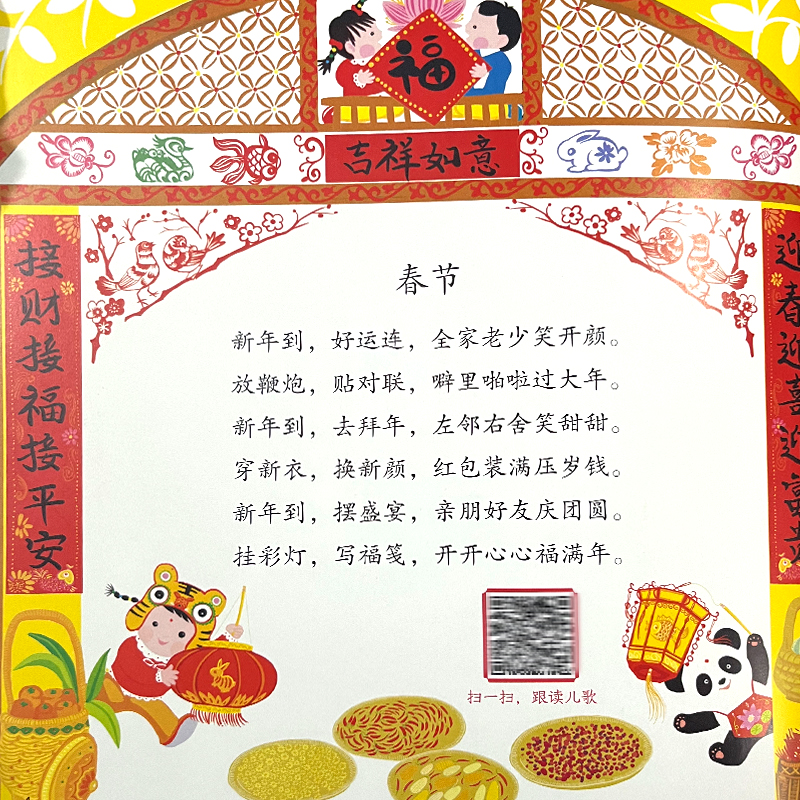 福
吉祥如意
接财接福接平安
迎春迎喜迎富贵
春节
新年到，好运连，全家老少笑开颜。
放鞭炮，贴对联，噼里啪啦过大年。
新年到，去拜年，左邻右舍笑甜甜。
穿新衣，换新颜，红包装满压岁钱。
新年到，摆盛宴，亲朋好友庆团圆。
挂彩灯，写福笺，开开心心福满年。
扫一扫，跟读儿歌